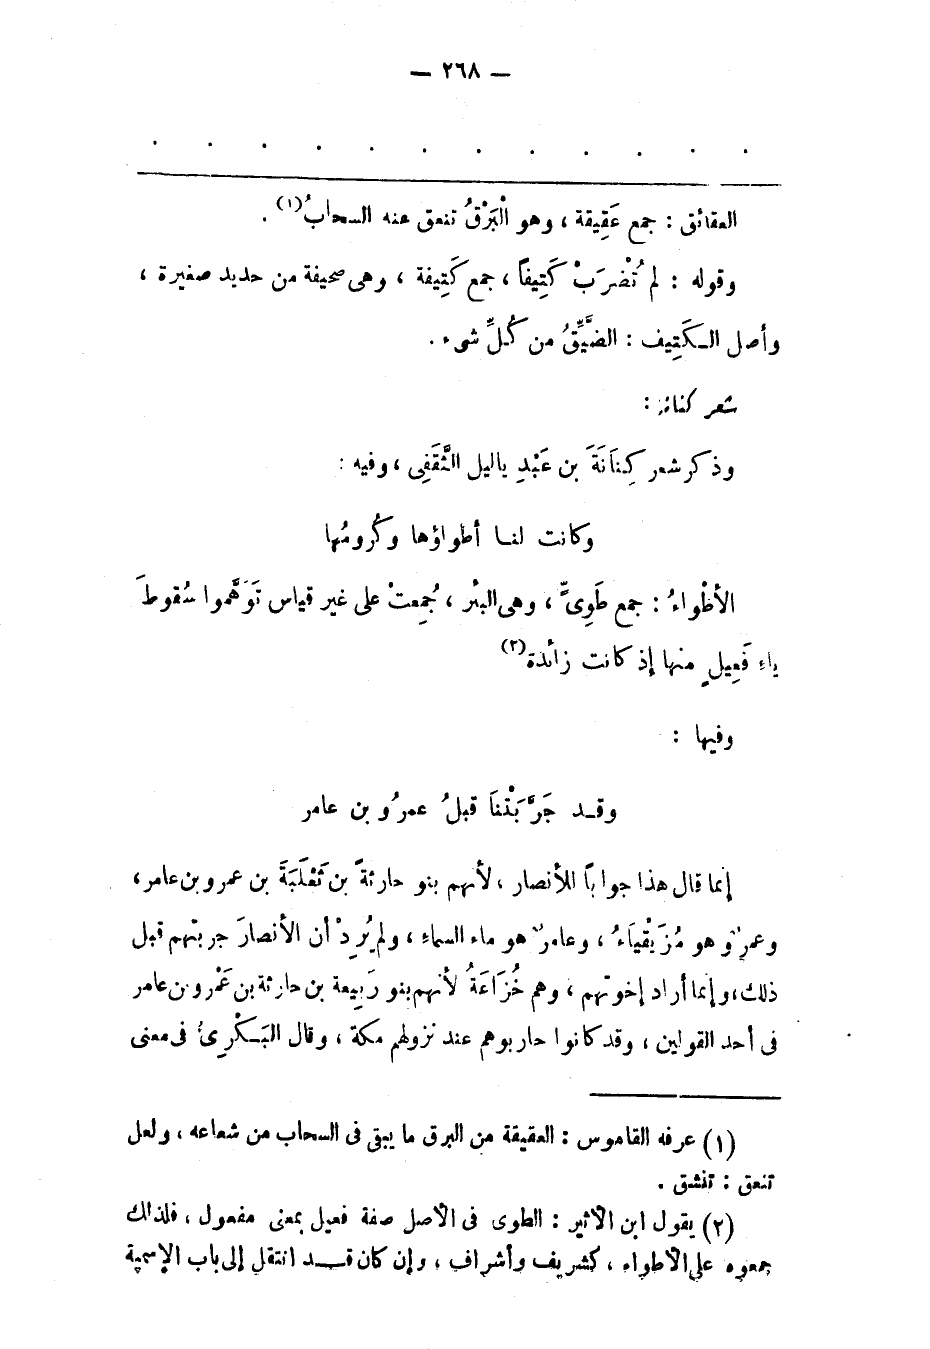 — ٢٦٨ —
. . . . . . . . . . . .
العقائق : جمع عَقِيقة ، وهو الْبَرْقُ تنعق عنه السحابُ(١) .
وقوله : لم تُضْرَبْ كَتِيفاً ، جمع كَتِيفة ، وهى صحيفة من حديد صغيرة ،
وأصل الـكَتِيف : الضَّيِّقُ من كُلِّ شىء .
شعر كنانة :
وذكر شعر كِنَانَةَ بن عَبْدِ ياليل الثَّقَفِى ، وفيه :
وكانت لنا أطواؤها وكُرومُها
الأطْواءُ : جمع طَوِىٍّ ، وهى البئر ، جُمِعتْ على غير قياس تَوَهَّموا سُقوطَ
ياءِ فَعِيلٍ منها إذ كانت زائدة(٢)
وفيها :
وقـد جَرَّبَتْنَا قبلُ عمرُو بن عامر
إنما قال هذا جواباً للأنصار ، لأنهم بنو حارثةَ بن ثَعْلَبَةَ بن عمرو بن عامر ،
وعمرٌو هو مُزَيقْيَاءُ ، وعامرٌ هو ماء السماءِ ، ولم يُرِدْ أن الأنصارَ جربتهم قبل
ذلك ، وإنما أراد إخوتهم ، وهم خُزَاعَةُ لأنهم بنو رَبِيعة بن حارثة بن عَمْرو بن عامر
فى أحد القولين ، وقد كانوا حاربوهم عند نزولهم مكة ، وقال البَـكْرِىُّ فى معنى
(١) عرفه القاموس : العقيقة من البرق ما يبقى فى السحاب من شعاعه ، ولعل
تنعق : تنشق .
(٢) يقول ابن الأثير : الطوى فى الأصل صفة فعيل بمعنى مفعول ، فلذلك
جمعوه على الأطواء ، كشريف وأشراف ، وإن كان قـد انتقل إلى باب الإسمية